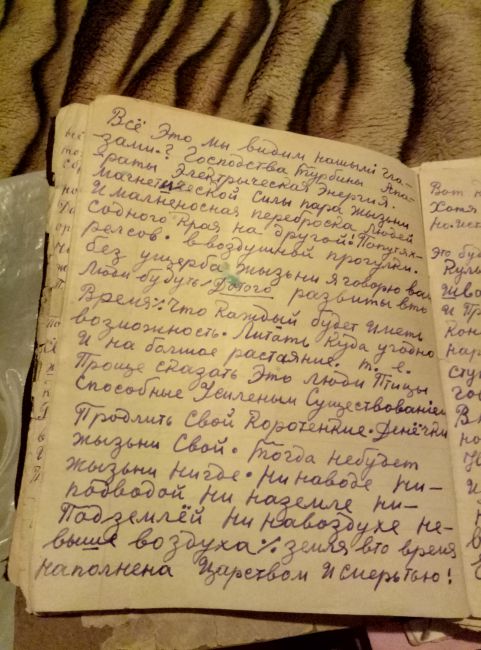 Всё Это мы видим нашыми гла-
зами.? Господства Турбины Апа-
раты Электрыческая Энергия.
Магнетической Силы пара Жызьни
И малненосная переброска людей
содного Края на другой: Попутях-
релсов. ввоздушной прогулки.
без ущерба жызьни Я говорю вам
Люди будуть Дотого развиты вто
Время% Что Каждый будет Иметь
возможность. Литать Куда угодно
И на болшое растаяние. т. е.
Проще сказать Это люди Птицы
Способные Усиленым Существованием
Продлить Свой Коротенкие. Денёчки
жызьни Свой. Тогда небудет
жызьни нигде. Ни наводе ни-
подводой ни наземле ни-
Подземлёй ни навоздухе не-
выше воздуха% земля вто время
наполнена Царством И смерьтью!
Вот
Хотя